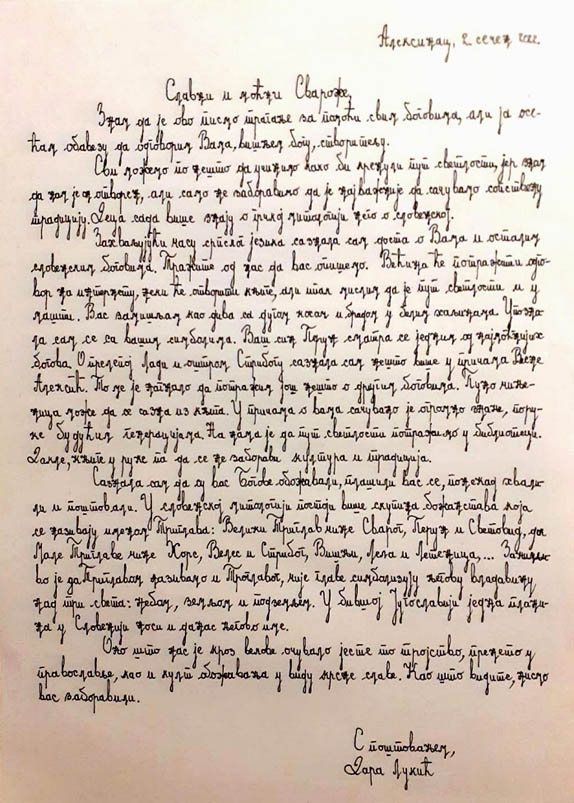 Алексинац, 2. сечењ 2022.
Славни и моћни Свароже,
Знам да је ово писмо тражење за помоћи свим боговима, али ја осе-
ћам обавезу да одговорим Вама, вишњем богу, створитељу.
Сви можемо по нешто да учинимо како би кренули пут светлости, јер знам
да нам је отворен, али само не заборавимо да је најважније да сачувамо сопствену
традицију. Деца сада више знају о грчкој митологији него о словенској.
Захваљујући часу српског језика сазнала сам доста о Вама и осталим
словенским боговима. Тражите од нас да вас опишемо. Већина ће потражити одго-
вор на интернету, неки ће отворити књиге, али ипак мислим да је пут светлости и у
машти. Вас замишљам као дива са дугом косом и брадом у белим хаљинама. Упозна-
ла сам се са вашим симболима. Ваш син Перун сматра се једним од најмоћнијих
богова. О прелепој Лади и оштром Стрибогу сазнала сам нешто више у причама Весне
Алексић. То ме је нагнало да потражим још нешто о другим боговима. Пуно чиње-
ница може да се сазна из књига. У причама о вама сачувано је огромно знање, пору-
ке будућим генерацијама. На нама је да пут светлости потражимо у библиотеци.
Дакле, књиге у руке па да се не заборави култура и традиција.
Сазнала сам да су вас Богове обожавали, плашили вас се, понекад хвали-
ли и поштовали. У словенској митологији постоји више скупина божанстава која
се називају именом Триглава: Велики Триглав чине Сварог, Перун и Световид, док
Мале Триглаве чине Хорс, Велес и Стрибог, Вишњи, Лела и Летеница,... Занимљи-
во је да Триглавом називамо и Троглавог, чије главе симболизују његову владавину
над три света: небом, земљом и подземљем. У бившој Југославији једна плани-
на у Словенији носи и данас његово име.
Оно што нас је кроз векове очувало јесте то тројство, пренето у
православље, као и култ обожавања у виду крсне славе. Као што видите, нисмо
вас заборавили.
С поштовањем,
Дара Лукић